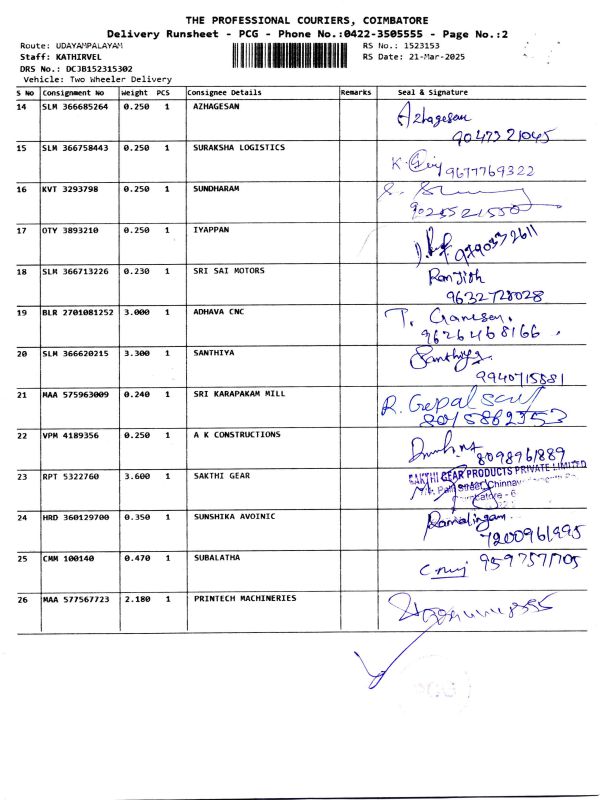 THE PROFESSIONAL COURIERS, COIMBATORE
Delivery Runsheet - PCG - Phone No.:0422-3505555 - Page No.:2
Route: UDAYAMPALAYAM RS No.: 1523153
Staff: KATHIRVEL RS Date: 21-Mar-2025
DRS No.: DCJB152315302
Vehicle: Two Wheeler Delivery
S No Consignment No Weight PCS Consignee Details Remarks Seal & Signature
14 SLM 366685264 0.250 1 AZHAGESAN Azhagesan
9047321045
15 SLM 366758443 0.250 1 SURAKSHA LOGISTICS K.
9677769322
16 KVT 3293798 0.250 1 SUNDHARAM
17 OTY 3893210 0.250 1 IYAPPAN
18 SLM 366713226 0.230 1 SRI SAI MOTORS Ranjith
9632728028
19 BLR 2701081252 3.000 1 ADHAVA CNC T. Ganesan.
9626468166.
20 SLM 366620215 3.300 1 SANTHIYA Santhiya
9940715881
21 MAA 575963009 0.240 1 SRI KARAPAKAM MILL R. Gopal
8015862353
22 VPM 4189356 0.250 1 A K CONSTRUCTIONS
8098961889
23 RPT 5322760 3.600 1 SAKTHI GEAR SAKTHI GEAR PRODUCTS PRIVATE LIMITED
Street, Chinnav
24 HRD 360129700 0.350 1 SUNSHIKA AVOINIC Ramalingam
7200961995
25 CMM 100140 0.470 1 SUBALATHA 9597571705
26 MAA 577567723 2.180 1 PRINTECH MACHINERIES
PCG